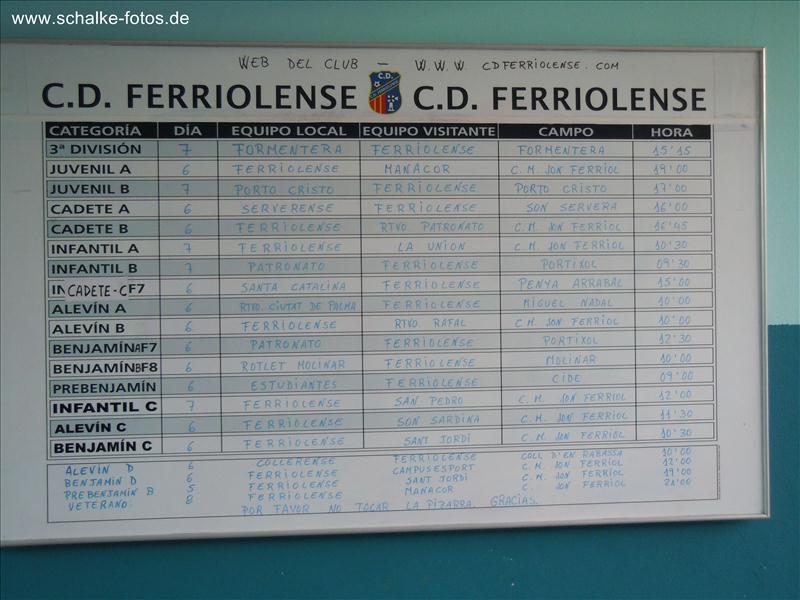 www.schalke-fotos.de
WEB DEL CLUB - W.W.W CDFERRIOLENSE.COM
C.D. FERRIOLENSE C.D. FERRIOLENSE
CATEGORÍA DÍA EQUIPO LOCAL EQUIPO VISITANTE CAMPO HORA
3ª DIVISIÓN 7 FORMENTERA FERRIOLENSE FORMENTERA 15'15
JUVENIL A 6 FERRIOLENSE MANACOR C. M. SON FERRIOL 19'00
JUVENIL B 7 PORTO CRISTO FERRIOLENSE PORTO CRISTO 17'00
CADETE A 6 SERVERENSE FERRIOLENSE SON SERVERA 16'00
CADETE B 6 FERRIOLENSE RTVO. PATRONATO C. M. SON FERRIOL 16'45
INFANTIL A 7 FERRIOLENSE LA UNION C. M. SON FERRIOL 10'30
INFANTIL B 7 PATRONATO FERRIOLENSE PORTIXOL 09'30
CADETE-C F7 6 SANTA CATALINA FERRIOLENSE PENYA ARRABAL 15'00
ALEVÍN A 6 RTVO. CIUTAT DE PALMA FERRIOLENSE MIGUEL NADAL 10'00
ALEVÍN B 6 FERRIOLENSE RTVO RAFAL C.M. SON FERRIOL 10'00
BENJAMÍN AF7 6 PATRONATO FERRIOLENSE PORTIXOL 12'30
BENJAMÍN BF8 6 ROTLET MOLINAR FERRIOLENSE MOLINAR 10'00
PREBENJAMÍN 6 ESTUDIANTES FERRIOLENSE CIDE 09'00
INFANTIL C 7 FERRIOLENSE SAN PEDRO C. M. SON FERRIOL 12'00
ALEVÍN C 6 FERRIOLENSE SON SARDINA C. M. SON FERRIOL 11'30
BENJAMÍN C 6 FERRIOLENSE SANT JORDI C. M. SON FERRIOL 10'30
ALEVIN D 6 COLLERENSE FERRIOLENSE COLL D'EN RABASSA 10'00
BENJAMIN D 6 FERRIOLENSE CAMPUSESPORT C. M. SON FERRIOL 12'00
PREBENJAMIN B 5 FERRIOLENSE SANT JORDI C. M. SON FERRIOL 19'00
VETERANO: 8 FERRIOLENSE MANACOR C. SON FERRIOL 21'00
POR FAVOR NO TOCAR LA PIZARRA GRACIAS.